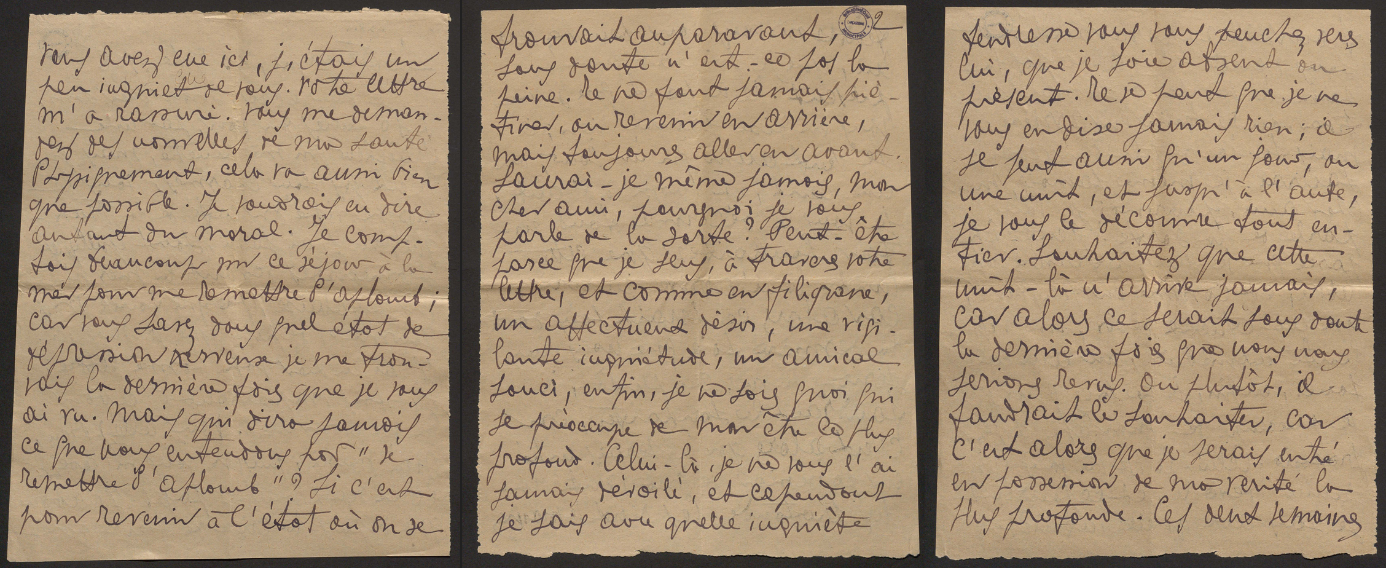 vous avez eue ici, j'étais un
peu inquiet de vous. Votre lettre
m'a rassuré. Vous me deman-
dez des nouvelles de ma santé
Physiquement, cela va aussi bien
que possible. Je voudrais en dire
autant du moral. Je comp-
tais beaucoup sur ce séjour à la
mer pour me remettre d'aplomb ;
car vous savez dans quel état de
dépression nerveuse je me trou-
vais la dernière fois que je vous
ai vu. Mais qui dira jamais
ce que nous entendons par "se
remettre d'aplomb" ? Si c'est
pour revenir à l'état où on se
2
trouvait auparavant,
sans doute n'est-ce pas la
peine. Il ne faut jamais pié-
tiner, ou revenir en arrière,
mais toujours aller en avant.
Saurai-je même jamais, mon
cher ami, pourquoi je vous
parle de la sorte ? Peut-être
parce que je sens, à travers votre
lettre, et comme en filigrane,
un affectueux désir, une vigi-
lante inquiétude, un amical
souci, enfin, je ne sais quoi qui
se préoccupe de mon être le plus
profond. Celui-là, je ne vous l'ai
jamais dévoilé, et cependant
je sais avec quelle inquiète
tendresse vous vous penchez vers
lui, que je sois absent ou
présent. Il se peut que je ne
vous en dise jamais rien ; il
se peut aussi qu'un jour, ou
une nuit, et jusqu'à l'aube,
je vous le découvre tout en-
tier. Souhaitez que cette
nuit-là n'arrive jamais,
car alors ce serait sans doute
la dernière fois que nous nous
serions revus. Ou plutôt, il
faudrait le souhaiter, car
c'est alors que je serais entré
en possession de ma vérité la
plus profonde. Ces deux semaines